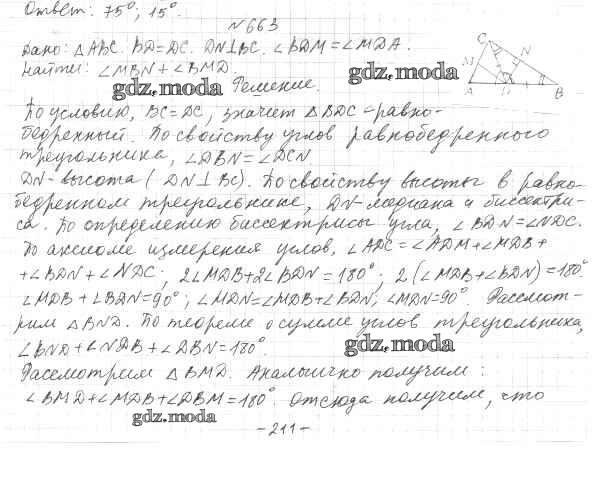 Ответ: 75°, 15°.
№ 663
Дано: △ABC. BD=DC. DN⊥BC. ∠BDM=∠MDA.
Найти: ∠MBN+∠BMD.
gdz.moda
Решение.
gdz.moda
C
M
N
A
D
B
По условию, BC=DC, значит △BDC – равно-
бедренный. По свойству углов равнобедренного
треугольника, ∠DBN=∠DCN
DN – высота (DN⊥BC). По свойству высоты в равно-
бедренном треугольнике, DN – медиана и биссектри-
са. По определению биссектрисы угла, ∠BDN=∠NDC.
По аксиоме измерения углов, ∠ADC=∠ADM+∠MDB+
+∠BDN+∠NDC; 2∠MDB+2∠BDN=180°; 2(∠MDB+∠BDN)=180°
∠MDB+∠BDN=90°; ∠MDN=∠MDB+∠BDN; ∠MDN=90°. Рассмот-
рим △BND. По теореме о сумме углов треугольника,
∠BND+∠NDB+∠DBN=180°.
gdz.moda
Рассмотрим △BMD. Аналогично получим:
∠BMD+∠MDB+∠DBM=180°. Отсюда получим, что
gdz.moda
-211-